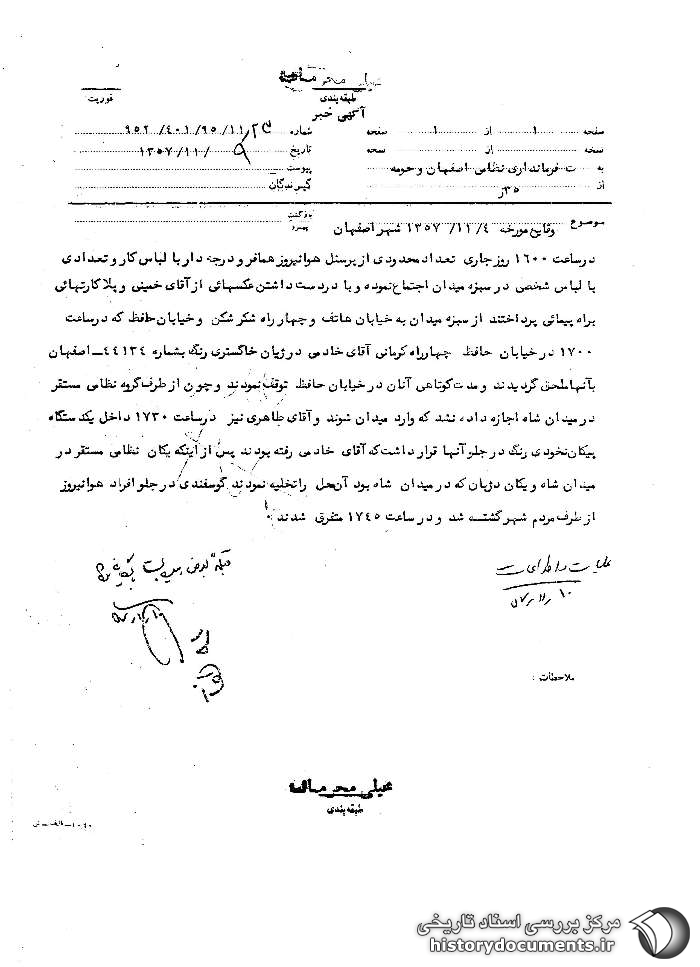 خیلی محرمانه
طبقه‌بندی
فوریت
آگهی خبر
صفحه ۱ از ۱ صفحه
شماره ۹۵۲/۴۰۱/۹۵/۱۱/۲۳
نسخه از نسخه
تاریخ ۹/۱۳۵۷/۱۱
به ت فرمانداری نظامی اصفهان و حومه
پیوست
از ۳۵ر
گیرندگان
بازگشت
پیرو
موضوع وقایع مورخه ۱۳۵۷/۱۱/۴ شهر اصفهان
در ساعت ۱۶۰۰ روز جاری تعداد محدودی از پرسنل هوانیروز همافر و درجه دار با لباس کار و تعدادی
با لباس شخصی در سبزه میدان اجتماع نموده و با در دست داشتن عکسهائی از آقای خمینی و پلاکارتهائی
براه پیمائی پرداختند از سبزه میدان به خیابان هاتف و چهار راه شکر شکن و خیابان حافظ که در ساعت
۱۷۰۰ در خیابان حافظ چهار راه کرمانی آقای خادمی در ژیان خاکستری رنگ بشماره ۴۴۱۳۴ـ اصفهان
بآنها ملحق گردیدند و مدت کوتاهی آنان در خیابان حافظ توقف نمودند و چون از طرف گروه نظامی مستقر
در میدان شاه اجازه داده نشد که وارد میدان شوند و آقای طاهری نیز در ساعت ۱۷۳۰ داخل یکدستگاه
پیکان نخودی رنگ در جلو آنها قرار داشت که آقای خادمی رفته بودند پس از اینکه یکان نظامی مستقر در
میدان شاه و یکان دژبان که در میدان شاه بود آن محل را تخلیه نمودند گوسفندی در جلو افراد هوانیروز
از طرف مردم شهر کشته شد و در ساعت ۱۷۴۵ متفرق شدند .
ملاحظات :
خیلی محرمانه
طبقه‌بندی
مرکز بررسی اسناد تاریخی
historydocuments.ir